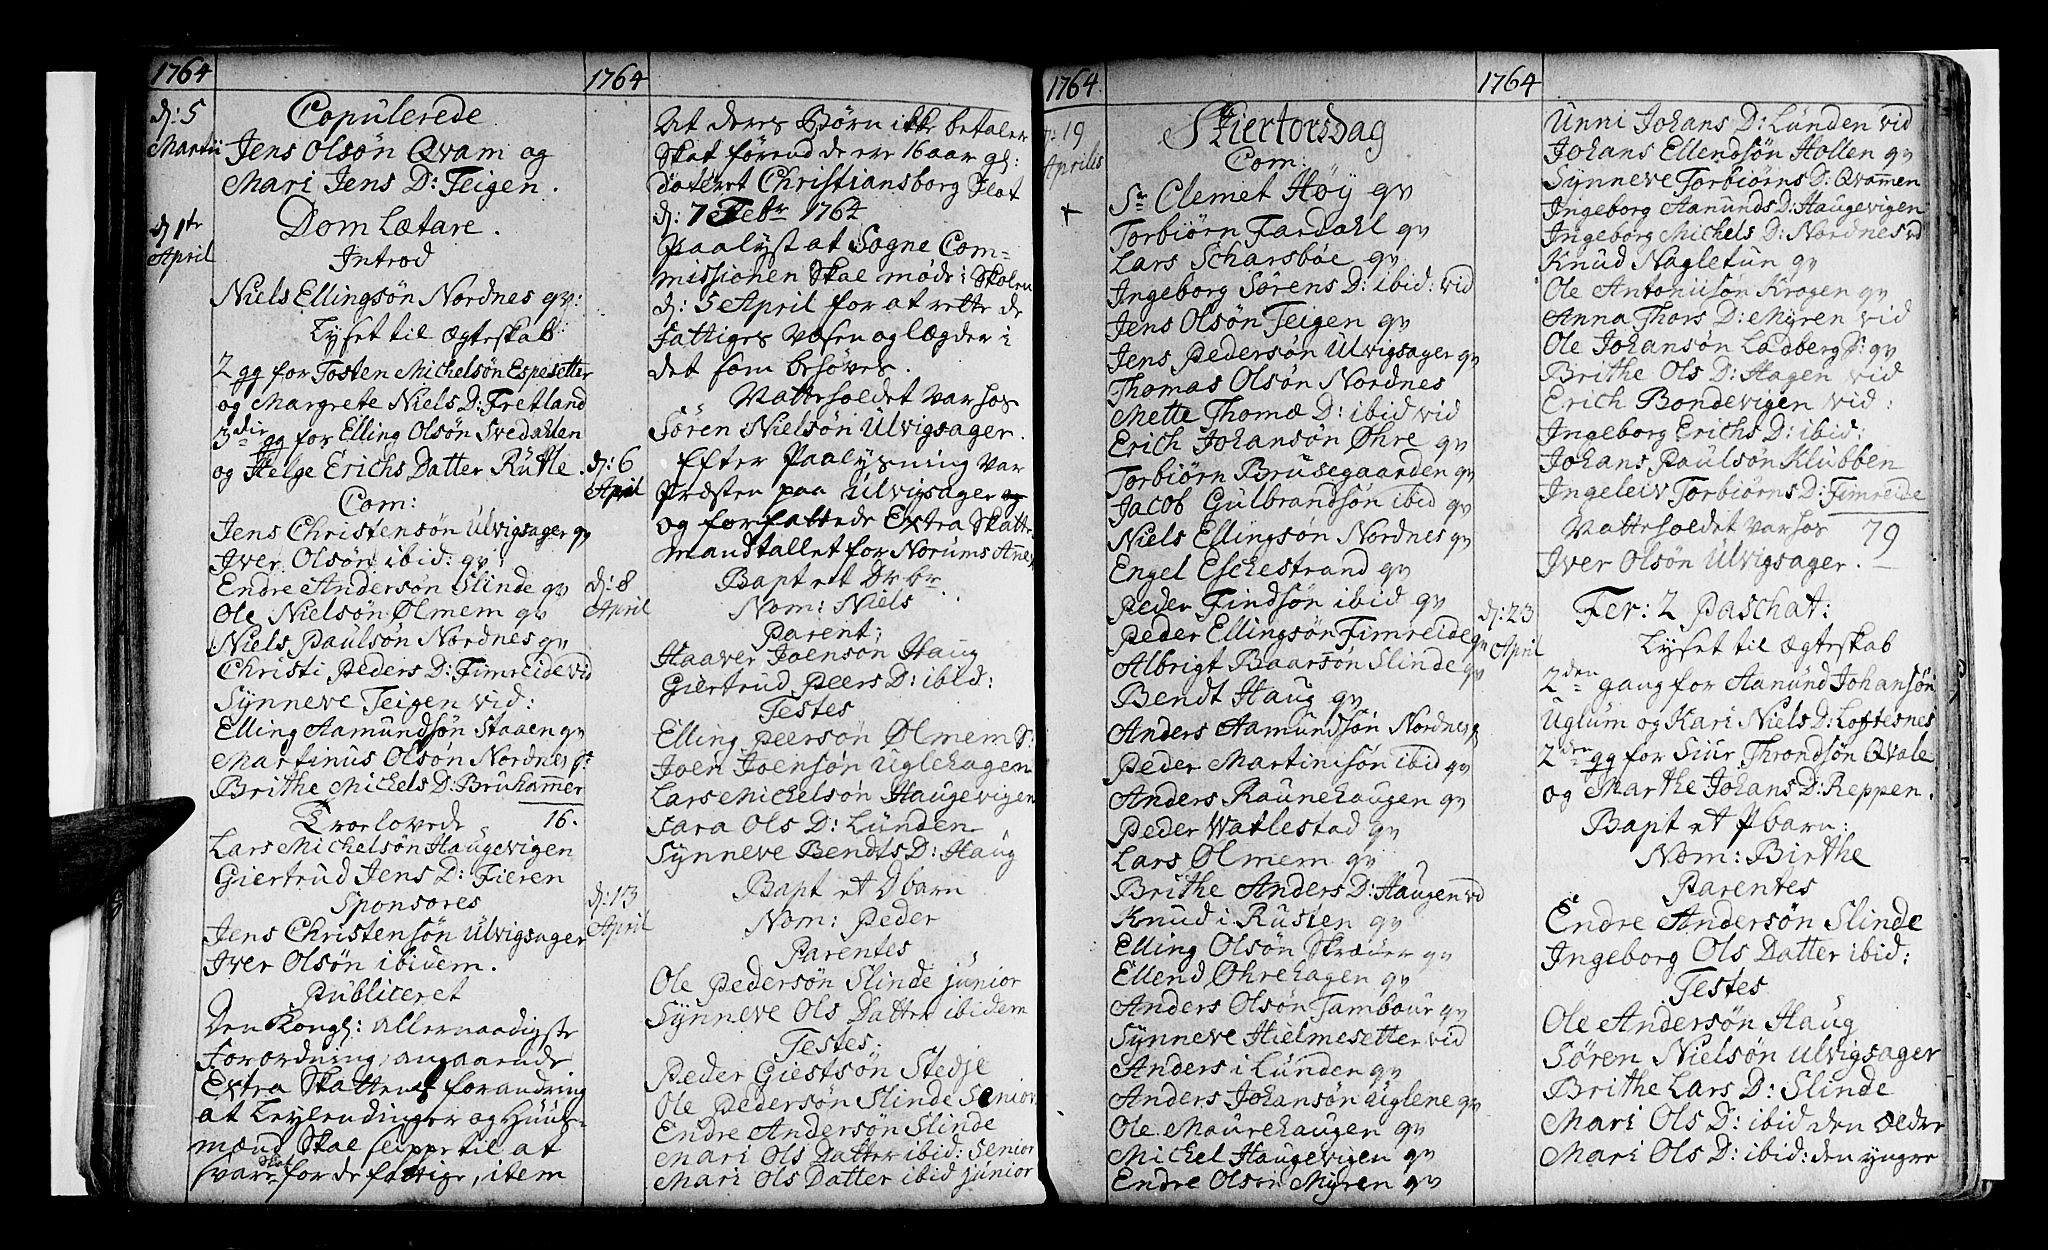 1764
d: 5
Martii
Copulerede
Jens Olsøn Qvam og
Mari Jens D: Teigen.
d 1te
April
Dom Lætare.
Introd
Niels Ellingsøn Nordnes qv:
Lyset til Ægteskab:
2 gg for Tosten Michelsøn Espesetter
og Margrete Niels D: Fretland
3die gg for Elling Olsøn Svedahlen
og Helge Erichs Datter Rutle.
Com:
Jens Christensøn Ulvigsager qv
Jver Olsøn ibid: qv:
Endre Andersøn Slinde qv
Ole Nielsøn Ølmem qv
Niels Paulsøn Nordnes qv
Christi Peders D: Fimreide vid
Synneve Teigen vid:
Elling Aamundsøn Staaen qv
Martinus Olsøn Nordnes
Brithe Michels D: Bruhammer
16.
Troelovede
Lars Michelsøn Haugevigen
Giertrud Jens D: Fieren
Sponsores
Jens Christensøn Ulvigsager
Jver Olsøn ibidem.
Publiceret
Den Kongl: allernaadigste
Forordning, angaaende
Extra Skattens forandring
at Leylendinger og Huus-
mænd skal slippe til at
svare for de fattige, item
1764
At deres Børn ikke betaler
Skat førend de ere 16 aar gl:
dateret Christiansborg Slot
d: 7 Febr 1764
Paalyst at Sogne Com-
missionen skal møde i Skolen
d: 5 April for at rette de
Fattiges Væsen og lægder i
det som behøves.
Vatteholdet var hos
Søren Nielsøn Ulvigsager.
d: 6
April
Efter Paalysning var
Præsten paa Ulvigsager og
og forfattede Extra Skatte
Mandtallet for Norums
d: 8
April
Bapt et Dr br
Nom: Niels
Parent:
Haaver Joensøn Haug
Giertrud Peers D: ibid:
Testes
Elling Peersøn Ølmem S:
Joen Joensøn Uglehagen
Lars Michelsøn Haugevigen
Sara Ols D: Lunden
Synneve Bendts D: Haug
d: 13
April
Bapt et Dbarn
Nom: Peder
Parentes
Ole Pedersøn Slinde junior
Synneve Ols Datter ibidem
Testes.
Peder Giestsøn Stedje
Ole Pedersøn Slinde Senior
Endre Andersøn Slinde
Mari Ols Datter ibid: Senior
Mari Ols Datter ibid junior
1764
d: 19
Aprilis
+
Skiertorsdag
Com:
Sr Clemet Høy qv
Torbiørn Fardahl qv
Lars Scharsbøe qv
Ingeborg Sørens D: ibid: vid
Jens Olsøn Teigen qv
Jens Pedersøn Ulvigsager qv
Thomas Olsøn Nordnes
Mette Thomæ D: ibid vid
Erich Johansøn Øhre qv
Torbiørn Brusegaarden qv
Jacob Gulbrandsøn ibid qv
Niels Ellingsøn Nordnes qv
Engel Eschestrand qv
Peder Findsøn ibid qv
Peder Ellingsøn Fimreide qv
Albrigt Baarsøn Slinde qv
Bendt Haug qv
Anders Aamundsøn Nordnes
Peder Martinisøn ibid qv
Anders Raunehaugen qv
Peder Watlestad qv
Lars Ølmem qv
Brithe Anders D: Haugen vid
Knud i Rusten qv
Elling Olsøn Skræer qv
Ellend Øhrehagen qv
Anders Olsøn Tambour qv
Synneve Hielmesetter vid
Anders i Lunden qv
Anders Johansøn Uglene qv
Ole Maurehaugen qv
Michel Haugevigen qv
Endre Olsøn Myren qv
1764
Unni Johans D: Lunden vid
Johans Ellendsøn Hollen qv
Synneve Torbiørns D: Qvammen
Ingeborg Aamunds D: Haugevigen
Ingeborg Michels D: Nordnes vd
Knud Nagletun qv
Ole Antoniisøn Krogen qv
Anna Thors D: Myren vid
Ole Johansøn Ladberg S: qv
Brithe Ols D: Hagen vid
Erich Bondevigen vid:
Ingeborg Erichs D: ibid:
Johans Paulsøn Klubben
Ingeleiv Torbiørns D: Fimreide
Vatteholdet var hos 79
Jver Olsøn Ulvigsager.
d: 23
April
Fer: 2 Paschat:
Lyset til Ægteskab
2den gang for Aamund Johansøn
Uglum og Kari Niels D: Loftesnes
2den gg for Siur Throndsøn Qvale
og Marthe Johans D: Reppen.
Bapt et Pbarn:
Nom: Birthe
Parentes
Endre Andersøn Slinde
Ingeborg Ols Datter ibid:
Testes
Ole Andersøn Haug
Søren Nielsøn Ulvigsager
Brithe Lars D: Slinde
Mari Ols D: ibid den ældre
Mari Ols D: ibid: den yngre